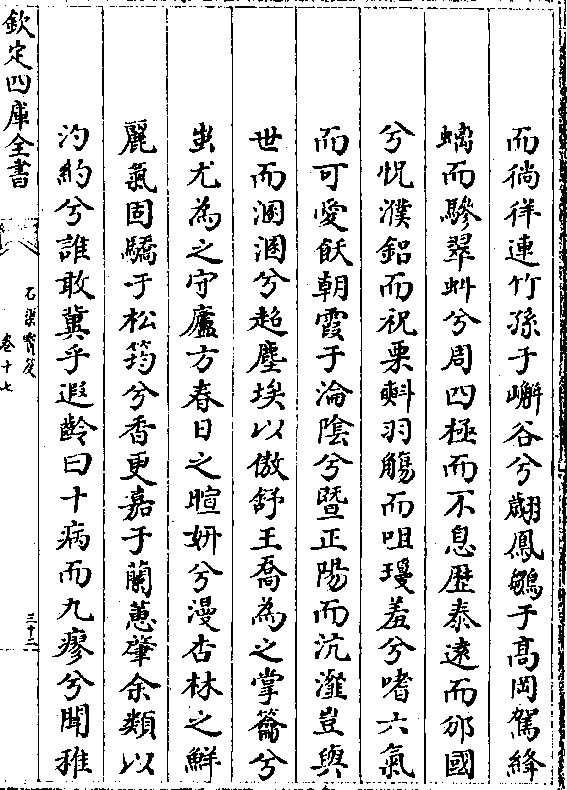 而徜徉連竹孫于嶰谷兮翽鳳鶵于髙岡駕絳
螭而驂翠虯兮周四極而不息歴泰逺而邠國
兮怳濮鈆而祝栗斞羽觴而咀瓊羞兮嗜六氣
而可愛飫朝霞于淪陰兮暨正陽而沆瀣豈與
世而溷溷兮超塵埃以傲舒王喬為之掌籥兮
蚩尤為之守廬方春日之暄妍兮漫杏林之鮮
麗氣固驕于松筠兮香更嘉于蘭蕙肇余類以
汋約兮誰敢冀乎遐齡曰十病而九瘳兮聞稚
欽定四庫全書
石渠寶笈
卷十七
三十二